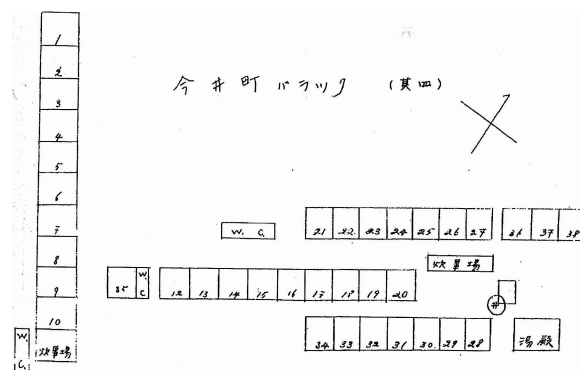 今井町バラック (其四)
1
2
3
4
5
6
7
8
9
10
炊事場
W.
C.
W. C.
21 22 23 24 25 26 27 36 37 38
炊事場
35 W. C 12 13 14 15 16 17 18 19 20
井
34 33 32 31 30 29 28 湯殿